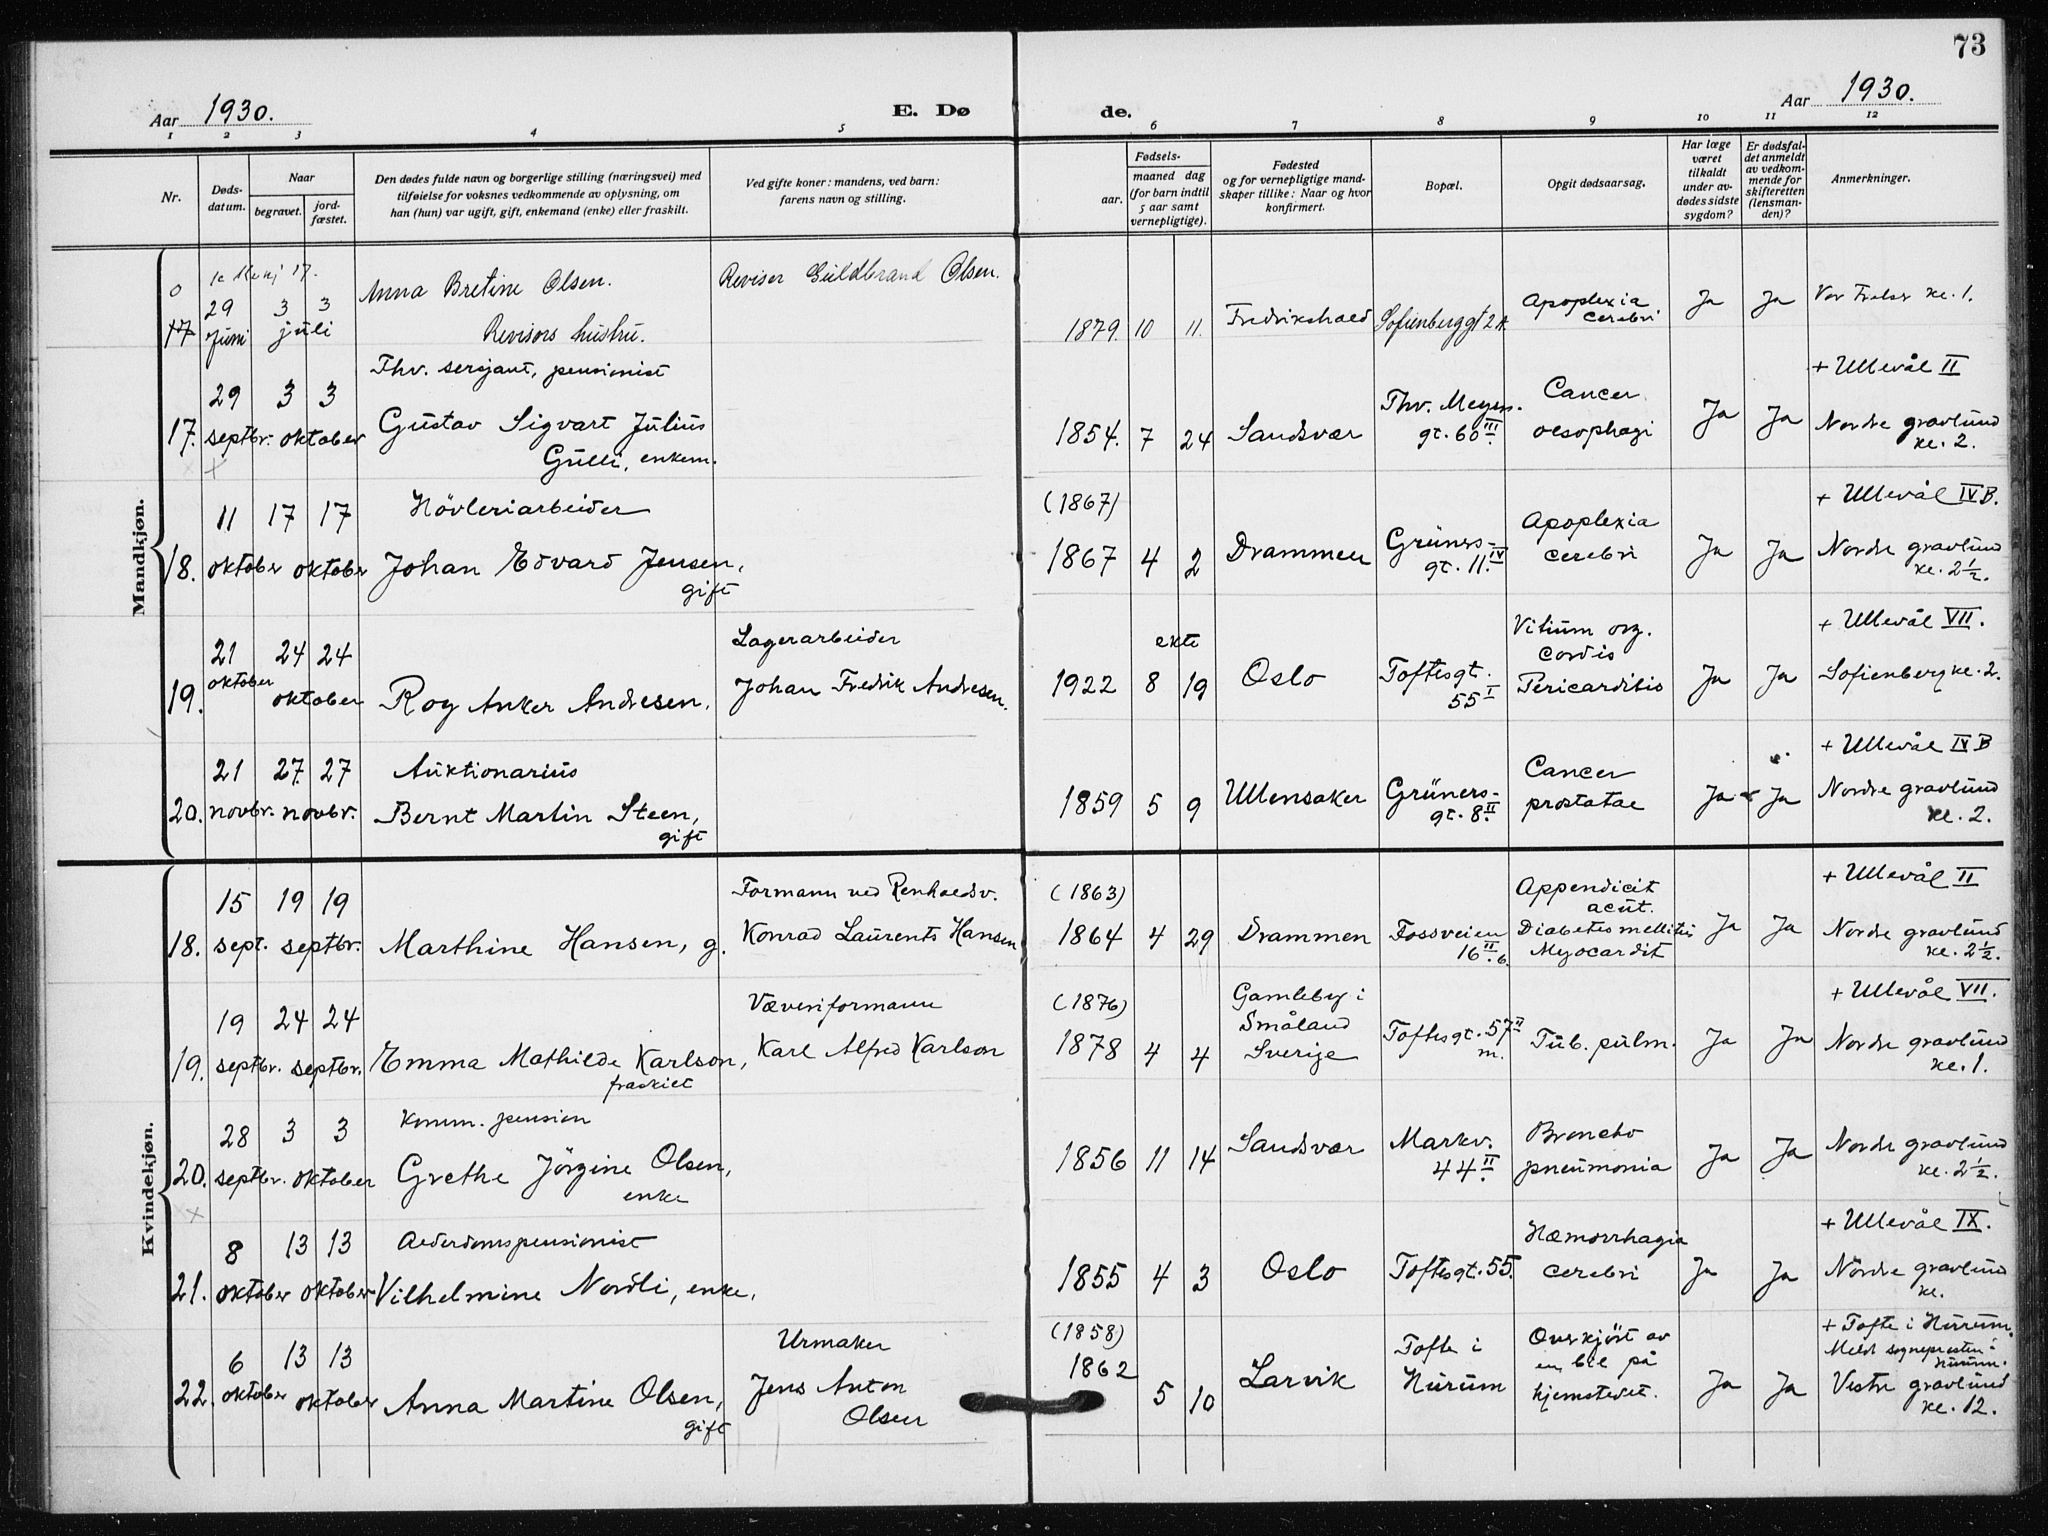 73
Aar 1930.
E. Døde.
Aar 1930.
1 2 3 4 5 6 7 8 9 10 11 12
Nr.
Døds-
datum.
Naar
begravet.
jord-
fæstet.
Den dødes fulde navn og borgerlige stilling (næringsvei) med
tilføielse for voksnes vedkommende av oplysning, om
han (hun) var ugift, gift, enkemand (enke) eller fraskilt.
Ved gifte koner: mandens, ved barn:
farens navn og stilling.
Fødsels-
aar.
maaned dag
(for barn indtil
5 aar samt
vernepligtige).
Fødested
og for vernepligtige mand-
skaper tillike: Naar og hvor
konfirmert.
Bopæl.
Opgit dødsaarsag.
Har læge
været
tilkaldt
under av-
dødes sidste
sygdom?
Er dødsfal-
det anmeldt
av vedkom-
mende for
skifteretten
(lensman-
den)?
Anmerkninger.
Mandkjøn.
17.
29 juni
3 3 juli
Anna Bretine Olsen.
Revisors hustru.
Revisor Guldbrand Olsen.
1879. 10 11.
Fredrikshald
Sofienberggt 2 A.
Apoplexia
cerebri
Ja Ja
Vor Frelser kl. 1.
17.
29 septbr.
3 3 oktober
Fhv. sersjant, pensionist
Gustav Sigvart Julius
Gulli, enkem.
1854. 7 24
Sandsvær
Thv. Meyers-
gt. 60 III
Cancer
oesophagi
Ja Ja
+ Ullevål II
Nordre gravlund
kl. 2.
18.
11 oktober
17 17 oktober
Høvleriarbeider
Johan Edvard Jensen,
gift
(1867)
1867 4 2
Drammen
Grüners-
gt. 11. IV
Apoplexia
cerebri
Ja Ja
+ Ullevål IV B.
Nordre gravlund
kl. 2 1/2.
19.
21 oktober
24 24 oktober
Roy Anker Andresen.
Lagerarbeider
Johan Fredrik Andresen.
ekte
1922 8 19
Oslo
Toftesgt.
55 I
Vitium org.
cordis
Pericarditis
Ja Ja
+ Ullevål VII.
Sofienberg kl. 2.
20.
21 novbr.
27. 27 novbr.
Auktionarius
Bernt Martin Steen,
gift
1859 5 9
Ullensaker
Grüners-
gt. 8. II
Cancer
prostatae
Ja Ja
+ Ullevål IV B
Nordre gravlund
kl. 2.
Kvindekjøn.
18.
15 sept.
19 19 septbr.
Marthine Hansen, g.
Formann ved Renholdsv.
Konrad Laurents Hansen
(1863)
1864 4 29
Drammen
Fossveien
16 II. b.
Appendicit
acut.
Diabetes mellitus
Myocardit
Ja Ja
+ Ullevål II
Nordre gravlund
kl. 2 1/2.
19.
19 septbr.
24 24 septbr.
Emma Mathilde Karlson,
fraskilt
Væveriformann
Karl Alfred Karlson
(1876)
1878 4 4
Gamleby i
Småland
Sverige
Toftesgt. 57 II
m.
Tub. pulm.
Ja Ja
+ Ullevål VII.
Nordre gravlund
kl. 1.
20.
28 septbr.
3 3 oktober
Komm. pension
Grethe Jørgine Olsen,
enke
1856 11 14
Sandsvær
Markv.
44 II.
Broncho
pneumonia
Ja Ja
Nordre gravlund
kl. 2 1/2.
21.
8 oktober
13 13 oktober
Alderdomspensionist
Vilhelmine Nordli, enke.
1855 4 3
Oslo
Toftesgt. 55.
Hæmorrhagia
cerebri
Ja Ja
+ Ullevål IX.
Nordre gravlund
kl.
22.
6 oktober
13 13 oktober
Anna Martine Olsen,
gift
Urmaker
Jens Anton
Olsen
(1858)
1862 5 10
Larvik
Tofte i
Hurum
Overkjørt av
en bil på
hjemstedet.
Ja Ja
+ Tofte i Hurum.
Meldt sogneprosten i
Hurum.
Vestre gravlund
kl. 12.